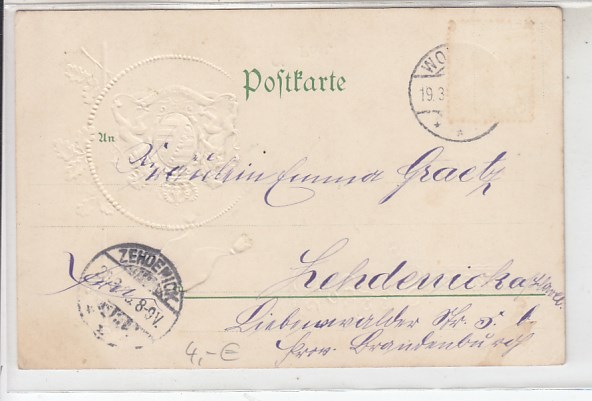 Postkarte
WO
19.3
An
Fräulein Emma Graetz
Zehdenick a/Havel.
ZEHDENICK
8-9V.
Liebenwalder Str. 5
Prov. Brandenburg
4,- €